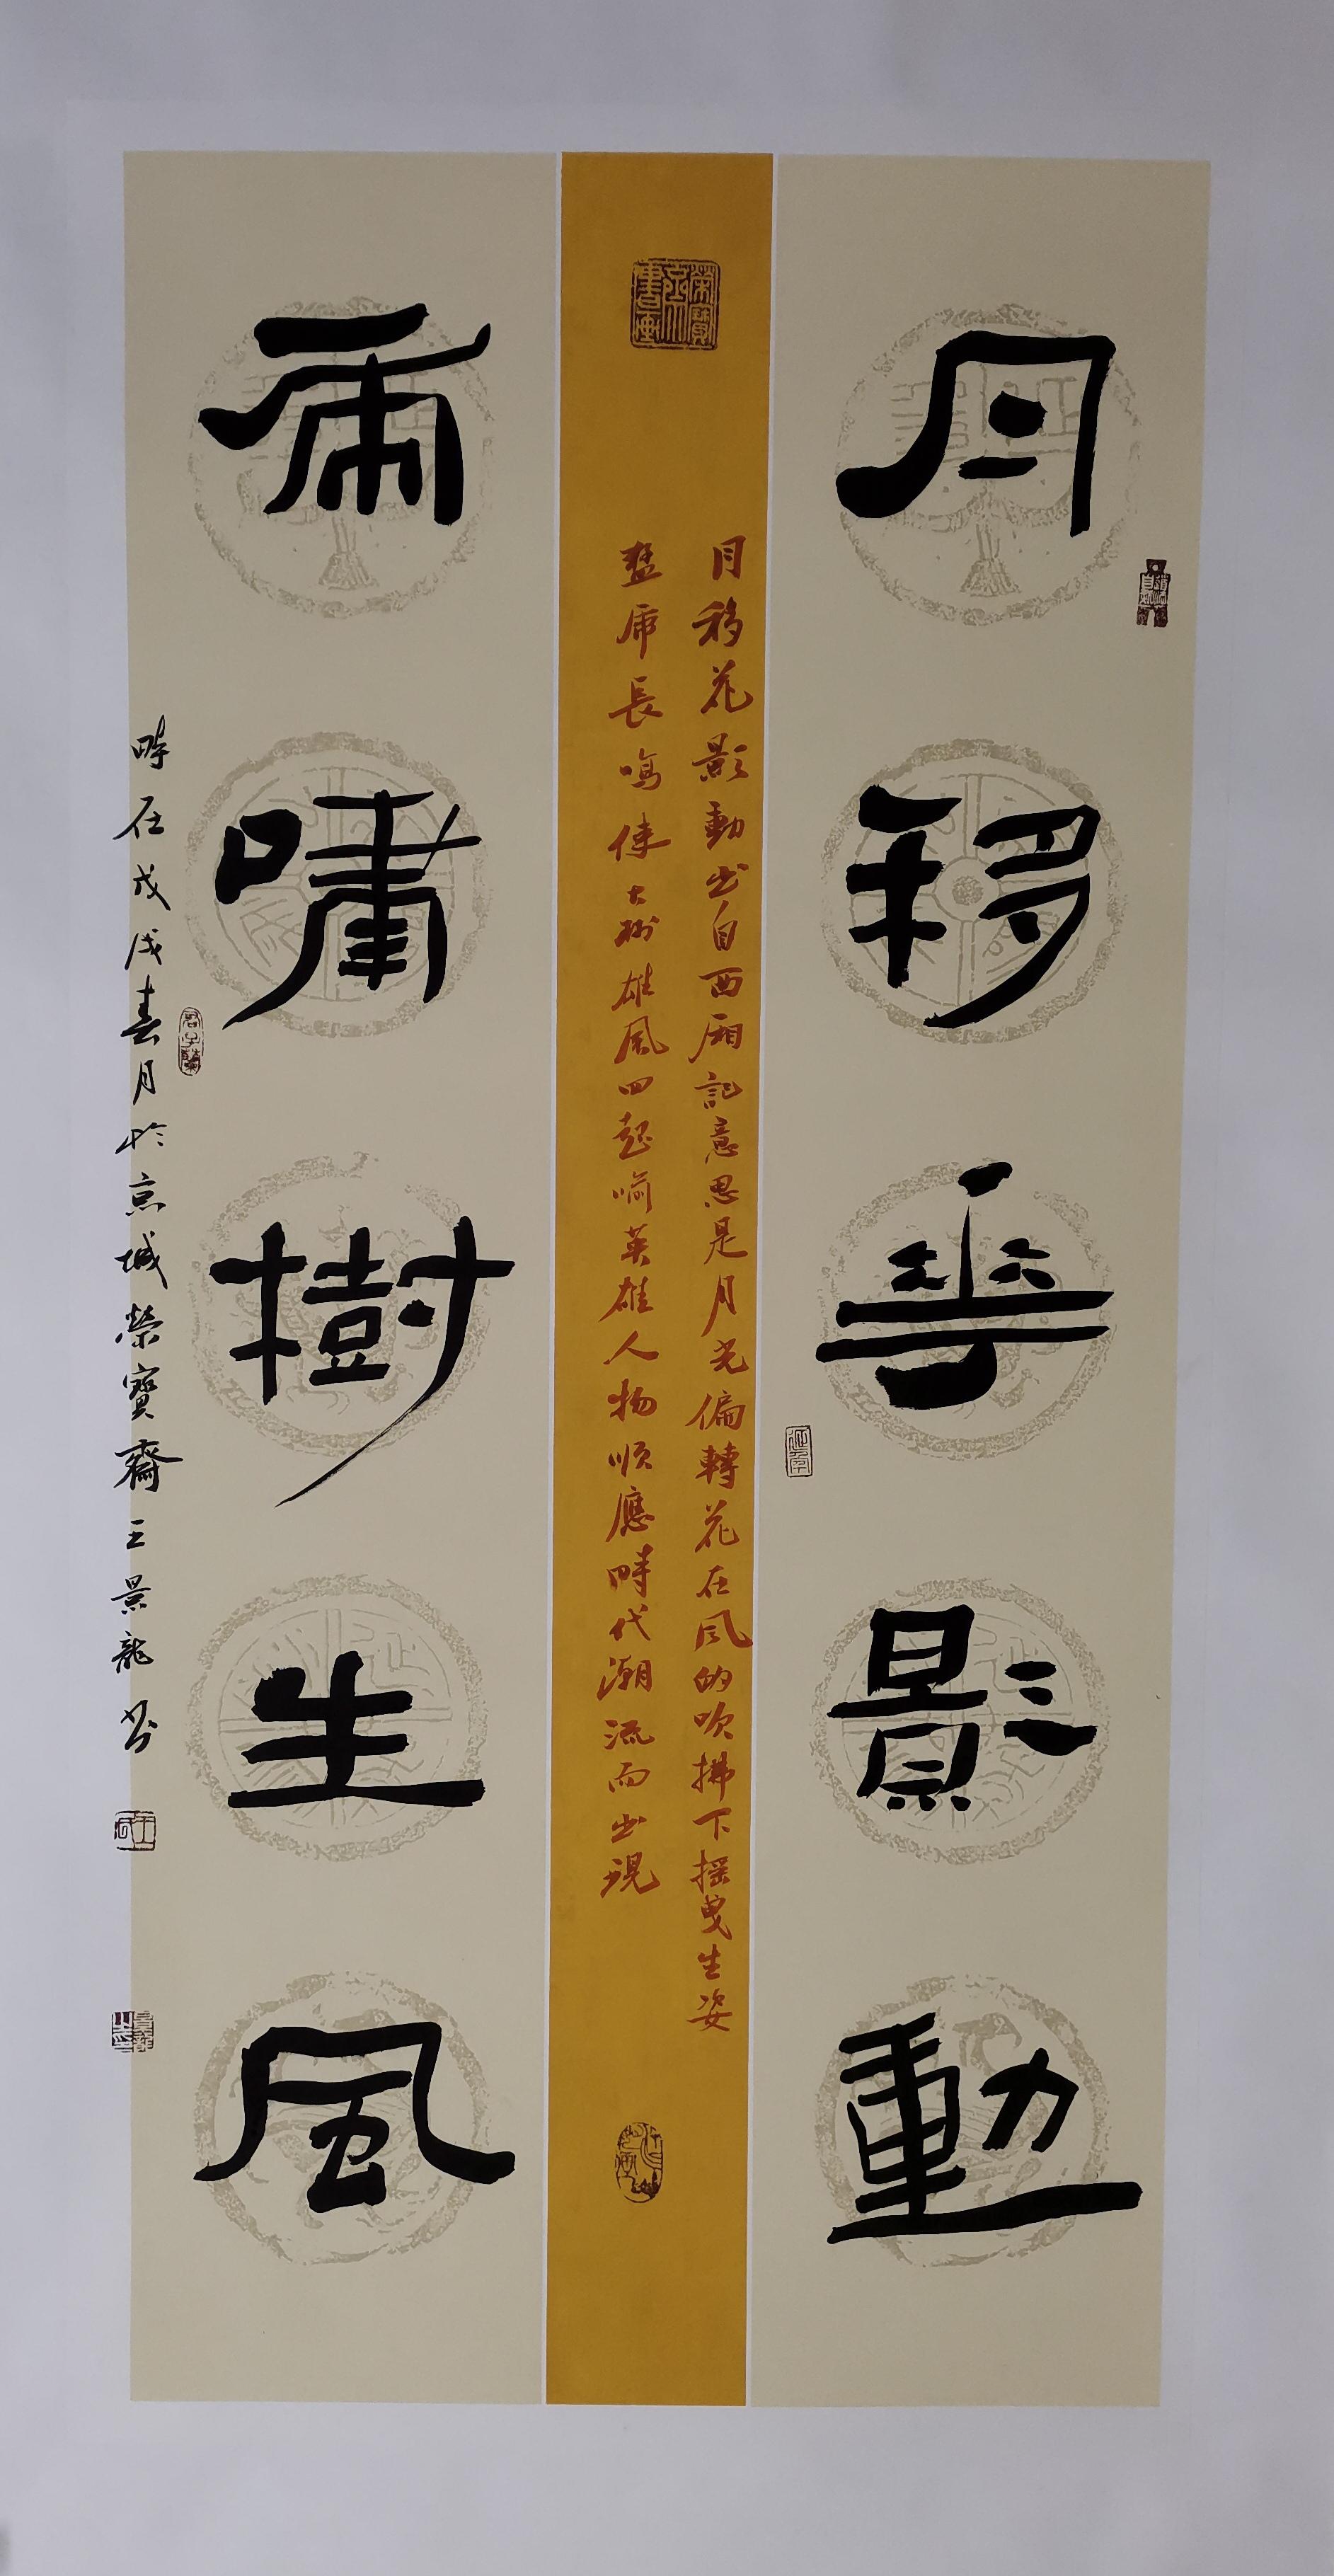 月移華影動
月移花影動出自西厢記意思是月光偏轉花在风的吹拂下摇曳生姿
猛虎長鳴使大樹雄風四起喻英雄人物顺應時代潮流而出現
虎嘯樹生風
時在戊戌春月於京城榮寳齋王景龍书